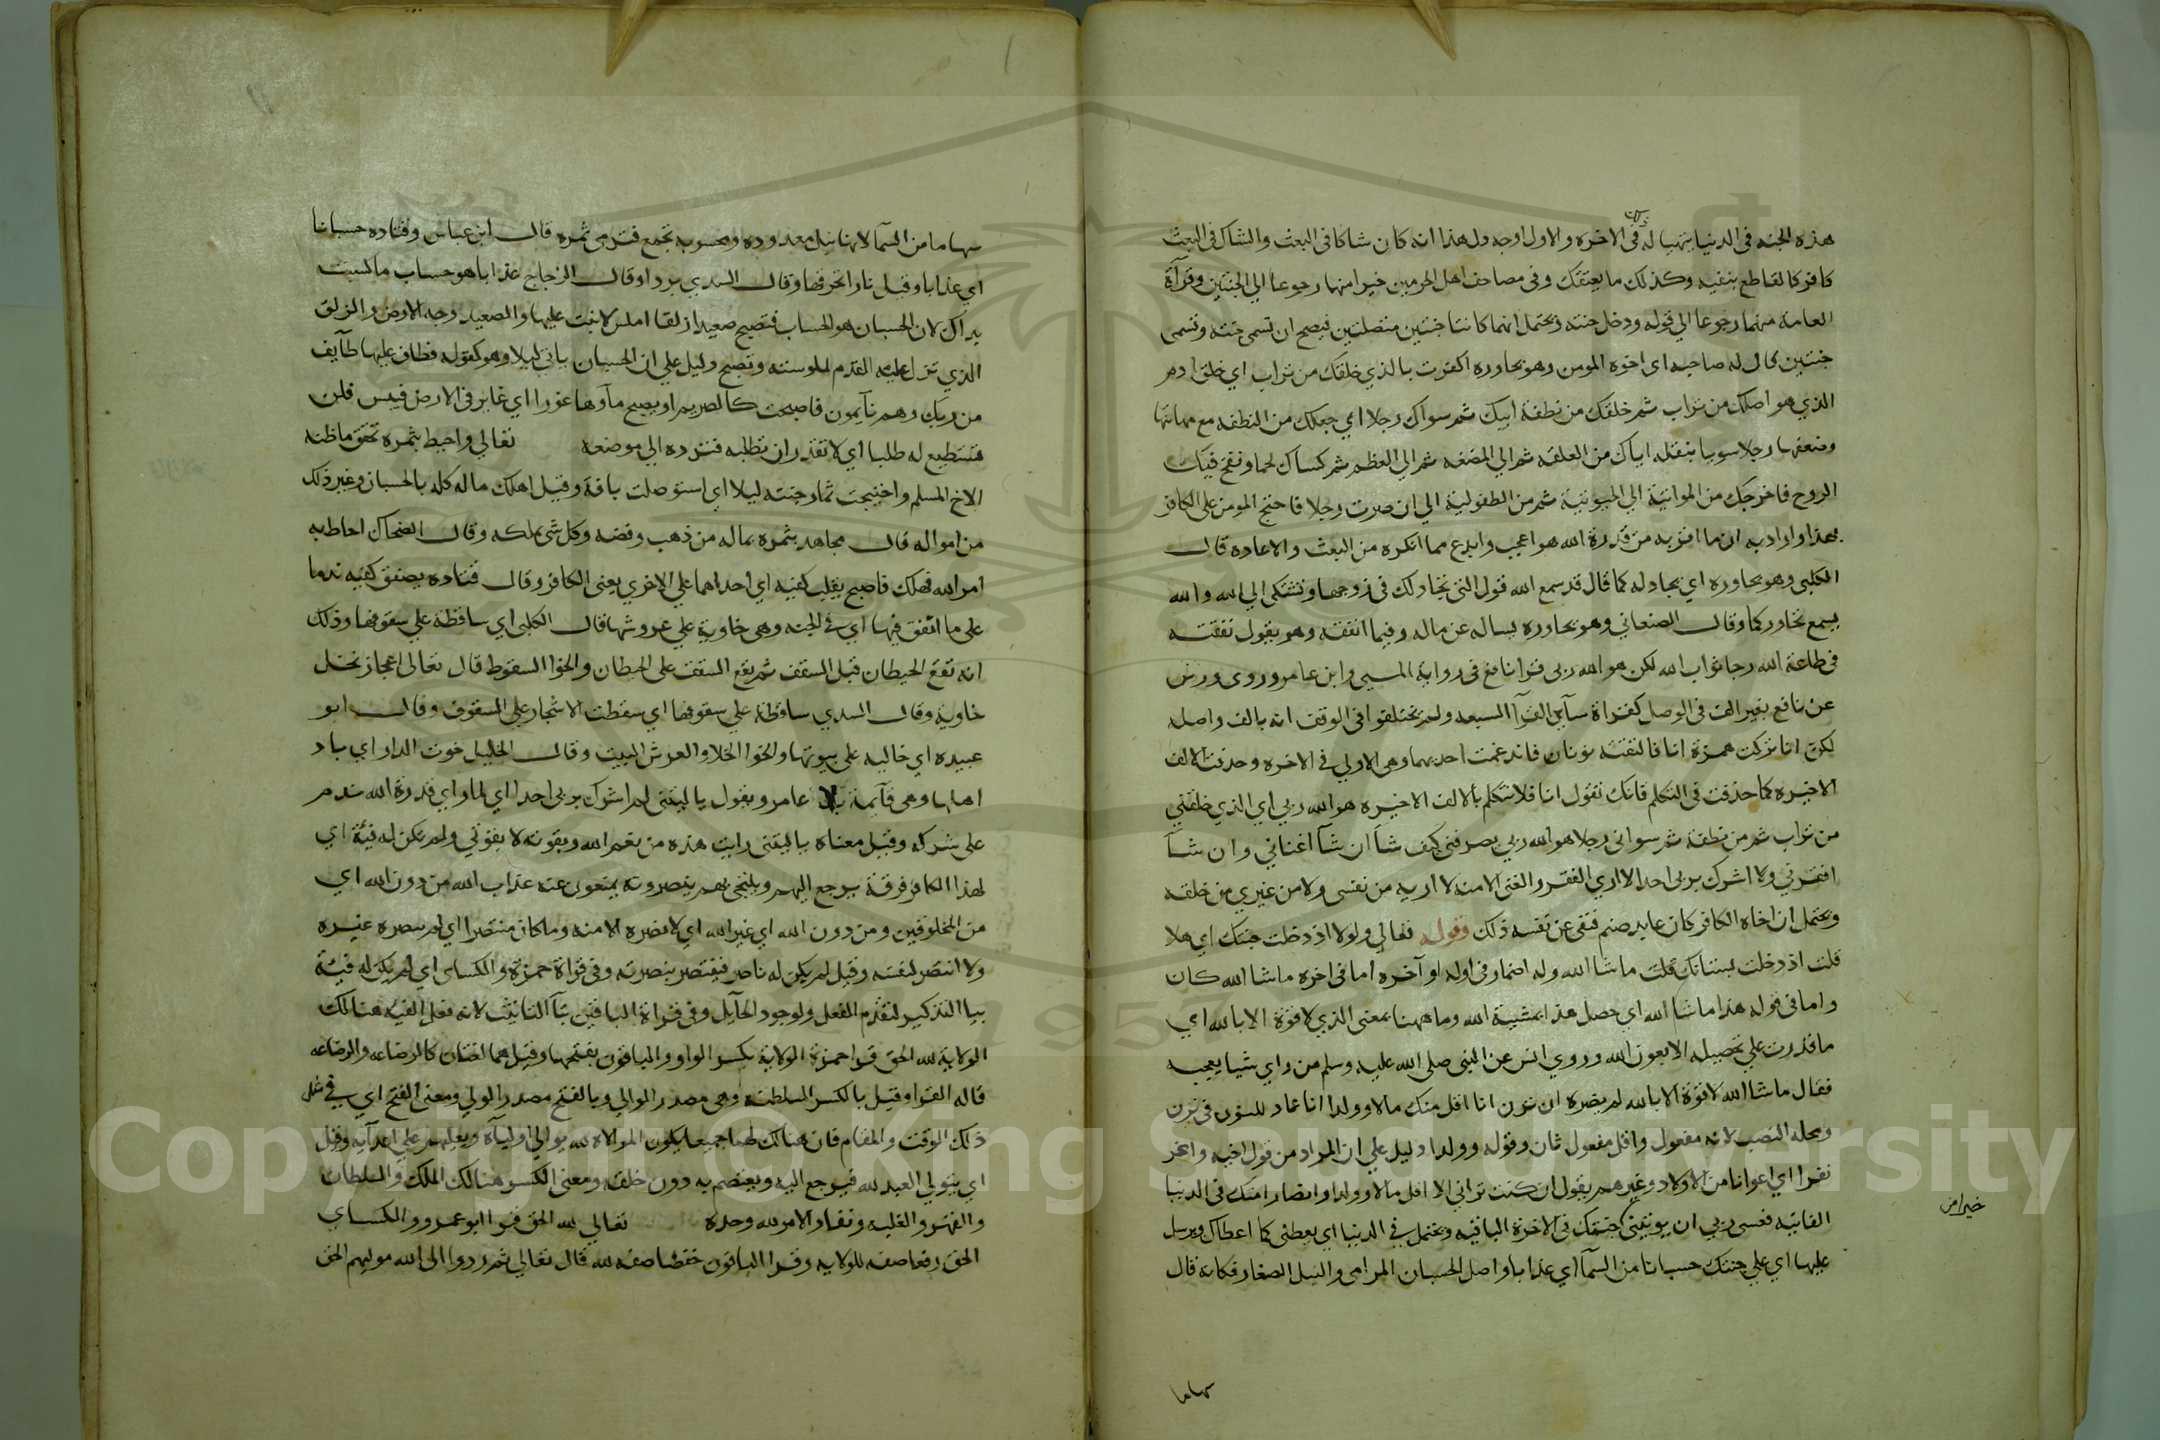 هذه الجنه في الدنيا يتهيا له ذلك في الاخره والاول اوجه ولهذا انه كان شاكا في البعث والشاك في البعث
كافر كالقاطع بنفيه وكذلك ما يعتقك وفي مصاحف اهل الحرمين خيرا منهما رجوعا الي الجنتين وقرآة
العامة منهما رجوعا الي قوله ودخل جنته ويحتمل انهما كانتا جنتين متصلتين فيصح ان تسمى جنته وتسمى
جنتين قال له صاحبه اى اخوه المومن وهو يحاوره اكفرت بالذي خلقك من تراب اي خلق ادم
الذي هو اصلك من تراب ثم خلقك من نطفة ابيك ثم سواك رجلا اي جعلك من النطفه مع مهانتها
وضعفها رجلا سويا بنقله اياك من العلقه ثم الي المضغه ثم الي العظم ثم كساك لحما ونفخ فيك
الروح فاخرجك من المواتية الي الحيوتية ثم من الطفولية الي ان صرت رجلا فاحتج المومن على الكافر
بهذا واراد به ان ما اقر به من قدرة الله هو اعجب وابدع مما انكره من البعث والاعاده قال
الكلبي وهو يحاوره اي يجادله كما قال قد سمع الله قول التي تجادلك في زوجها وتشتكى الي الله والله
يسمع تحاوركما وقال الصنعاني وهو يحاوره يساله عن ماله وفيما انفقه وهو يقول نفقته
في طاعة الله رجا ثواب الله لكن هو الله ربى قرا نافع في رواية المسيبى وابن عامر وروى ورش
عن نافع بغير الف في الوصل كقراة سآئر القرآ السبعه ولم يختلفوا في الوقف انه بالف واصله
لكن انا تركت همزة انا فالتقته نونان فاندغمت احديهما وهى الاولي في الاخره وحذفت الالف
الاخيره كما حذفت في التكلم فانك تقول انا فلا تتكلم بالالف الاخيره هو الله ربي اي الذي خلقني
من تراب ثم من نطفة ثم سوانى رجلا هو الله ربي يصرفني كيف شآ ان شآ اغناني وان شآ
افقرني ولا اشرك بربى احدا لا اري الفقر والغنى الا منه لا اريه من نفسي ولا من غيري من خلقه
ويحتمل ان اخاه الكافر كان عابد صنم فنفى عن نفسه ذلك وقوله تعالي ولولا اذ دخلت جنتك اي هلا
قلت اذ دخلت بستانك قلت ما شا الله وله اضمار في اوله او آخره اما في اخره ما شا الله كان
واما في قوله هذا ما شا الله اي حصل هذا بمشية الله وما ههنا بمعنى الذي لا قوة الا بالله اي
ما قدرت على تحصيله الا بعون الله وروي انس عن النبى صلى الله عليه وسلم من راي شيا يعجبه
فقال ما شا الله لا قوة الا بالله لم يضره ان ترن انا اقل منك مالا وولدا انا عماد للنون في ترن
ومحله النصب لانه مفعول واقل مفعول ثان وقوله وولدا دليل علي ان المراد من قول اخيه واعز
نفرا اي اعوانا من الاولاد وغيرهم يقول ان كنت تراني الا اقل مالا وولدا وانصارا منك في الدنيا
الفانيه فعسى ربي ان يوتيني خيرا من جنتك في الاخرة الباقيه ويحتمل في الدنيا اي يعطني كما اعطاك ويرسل
عليها اي علي جنتك حسبانا من السمآ اي عذابا واصل الحسبان المرامى والنبل الصغار فكانه قال
سهاما
سهاما من السمآ لانها نبل معدوده ومحسوبه تجمع فترمى ثمره قال ابن عباس وقتاده حسبانا
اي عذابا وقيل نارا تحرقها وقال السدي بردا وقال الزجاج عذابا هو حساب ما كسبت
يداك لان الحسبان هو الحساب فتصبح صعيدا زلقا املس لا نبت عليها والصعيد وجه الارض والزلق
الذي تزل عليه القدم لملوسته وتصبح دليل علي ان الحسبان ياتي ليلا وهو كقوله فطاف عليها طآيف
من ربك وهم نآيمون فاصبحت كالصريم او يصبح مآوها غورا اي غابر في الارض فيبس فلن
تستطيع له طلبا اي لا تقدر ان تطلبه فترده الي موضعه تعالي واحيط بثمره تحقق ما ظنه
الاخ المسلم واجتيحت ثمار جنته ليلا اي استوصلت بافة وقيل اهلك ماله كله بالحسبان وغير ذلك
من امواله قال مجاهد بثمره بماله من ذهب وفضه وكل شى يملكه وقال الضحاك احاط به
امر الله فهلك فاصبح يقلب كفيه اي احداهما علي الاخري يعنى الكافر وقال قتاده يصفق كفيه ندما
على ما انفق فيها اي في الجنه وهى خاوية علي عروشها قال الكلبى اي ساقطة علي سقوفها وذلك
انه تقع الحيطان قبل السقف ثم يقع السقف على الحيطان والخوا السقوط قال تعالى اعجاز نخل
خاوية وقال السدي ساقطة علي سقوفها اي سقطت الاشجار علي السقوف وقال ابو
عبيده اي خاليه على بيوتها والخوا الخلا والعرش البيت وقال الخليل خوت الدار اي باد
اهلها وهى قآيمة بلا عامر ويقول يا ليتنى لم اشرك بربى احدا اي لما راي قدرة الله ندم
على شركه وقيل معناه يا ليتنى رايت هذه من نعم الله وبقوته لا بقوتي ولم تكن له فئة اي
لهذا الكافر فرقة يرجع اليهم ويلتجى بهم ينصرونه يمنعون عنه عذاب الله من دون الله اي
من المخلوقين ومن دون الله اي غير الله اي لا نصره الا منه وما كان منتصرا اي لم ينصره غيره
ولا انتصر لنفسه وقيل لم يكن له ناصر فينتصر بنصرته وفي قراة حمزة والكساى اي لم يكن له فئة
بيا التذكير لتقدم الفعل ولوجود الحآيل وفي قراة الباقين بتآ التانيث لانه فعل الفيه هنالك
الولاية لله الحق قرا حمزة الولاية بكسر الواو والباقون بفتحها وقيل هما لغتان كالرضاعه والرضاعه
قاله الفرا وقيل بالكسر السلطنه وهى مصدر الموالي وبالفتح مصدر الولي ومعنى الفتح اي في مثل
ذلك الوقت والمقام فان هنالك لهما جميعا يكون الموالاه لله يوالي اوليآه ويعليهم علي اعدآيه وقيل
اي يتولي العبد لله فيرجع اليه ويعتصم به دون خلقه ومعنى الكسر هنالك الملك والسلطان
والقهر والغلبه ونفاد الامر لله وحده تعالي لله الحق قرا ابو عمرو والكساى
الحق رفعا صفه للولايه وقرا الباقون خفضا صفه لله قال تعالي ثم ردوا الى الله موليهم الحق